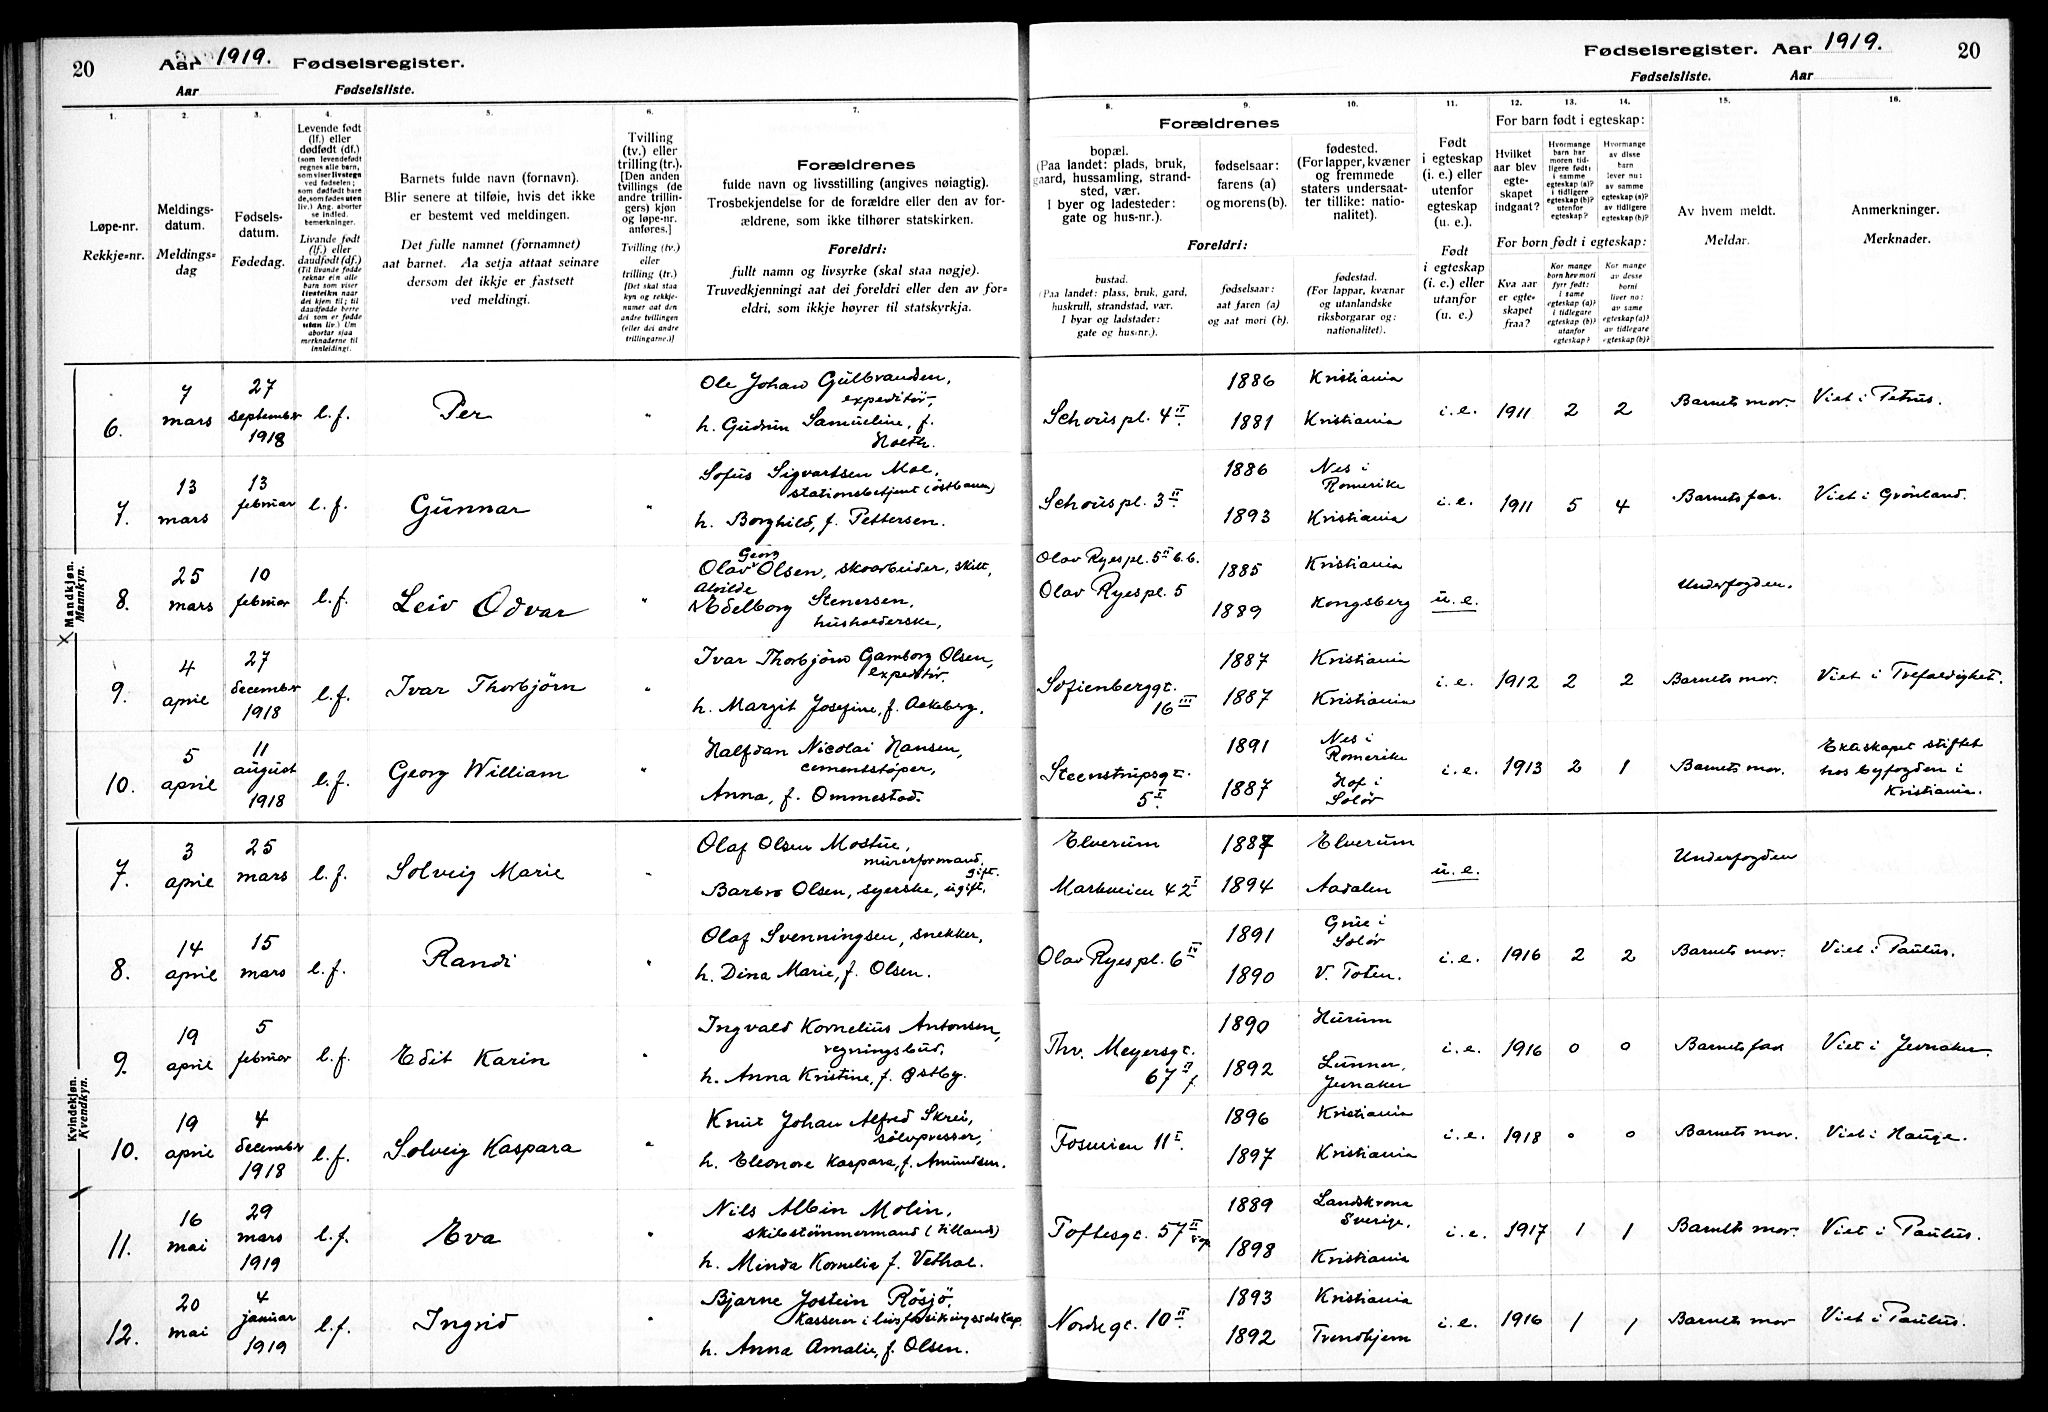 20 Aar 1919. Fødselsregister.
Aar Fødselsliste.
Fødselsregister. Aar 1919. 20
Fødselsliste. Aar
1. 2. 3. 4. 5. 6. 7. 8. 9. 10. 11. 12. 13. 14. 15. 16.
Løpe-nr.
Rekkje-nr.
Meldings-
datum.
Meldings-
dag
Fødsels-
datum.
Fødedag.
Levende født
(lf.) eller
dødfødt (df.)
Livande født
(lf.) eller
daudfødt (df.)
Barnets fulde navn (fornavn).
Blir senere at tilføie, hvis det ikke
er bestemt ved meldingen.
Det fulle namnet (fornamnet)
aat barnet. Aa setja attaat seinare
dersom det ikkje er fastsett
ved meldingi.
Tvilling
(tv.) eller
trilling (tr.).
[Den anden
tvillings (de
andre trillin-
gers) kjøn
og løpe-nr.
anføres.]
Tvilling (tv.)
eller
trilling (tr.)
[Det skal staa
kyn og rekkje-
numer aat den
andre tvillingen
(eller dei andre
trillingarne.)]
Forældrenes
fulde navn og livsstilling (angives nøiagtig).
Trosbekjendelse for de forældre eller den av for-
ældrene, som ikke tilhører statskirken.
Foreldri:
fullt namn og livsyrke (skal staa nøgje).
Truvedkjenningi aat dei foreldri eller den av for-
eldri, som ikkje høyrer til statskyrkja.
Forældrenes
bopæl.
(Paa landet: plads, bruk,
gaard, hussamling, strand-
sted, vær.
I byer og ladesteder:
gate og hus-nr.).
fødselsaar:
farens (a)
og morens (b).
fødested.
(For lapper, kvæner
og fremmede
staters undersaat-
ter tillike: natio-
nalitet).
Foreldri:
bustad.
(Paa landet: plass, bruk, gard,
huskrull, strandstad, vær.
I byar og ladstader:
gate og hus-nr.).
fødselsaar:
aat faren (a)
og aat mori (b).
fødestad.
(For lappar, kvænar
og utanlandske
riksborgarar og:
nationalitet).
Født
i egteskap
(i. e.) eller
utenfor
egteskap
(u. e.).
Født
i egteskap
(i. e.) eller
utanfor
(u. e.)
For barn født i egteskap:
Hvilket
aar blev
egte-
skapet
indgaat?
Hvormange
barn har
moren tid-
ligere født:
i samme
egteskap (a)?
i tidligere
egteskap (b)?
utenfor
egteskap?
Hvormange
av disse
barn
lever nu:
av samme
egteskap (a)?
av tidligere
egteskap (b)?
For born født i egteskap:
Kva aar
er egte-
skapet
fraa?
Kor mange
born hev mori
fyrr født:
i same
egteskap (a)?
i tidlegare
egteskap (b)?
utanfor
egteskap?
Kor mange
av desse
borni
liver no:
av same
egteskap (a)?
av tidlegare
egteskap (b)?
Av hvem meldt.
Meldar.
Anmerkninger.
Merknader.
Mandkjøn.
Mannkyn.
6. 7 mars 27 september 1918 l.f. Per " Ole Johan Gulbrandsen, expeditør,
h. Gudrun Samueline, f. Holth. Schouspl. 4 II 1886 Kristiania
1881 Kristiania i.e. 1911 2 2 Barnets mor. Viet i Petrus.
7. 13 mars 13 februar l.f. Gunnar " Sofus Sigvartsen Moe, stationsbetjent (østbanen)
h. Borghild, f. Pettersen. Schouspl. 3 II 1886 Nes i Romerike
1893 Kristiania i.e. 1911 5 4 Barnets far. Viet i Grønland.
8. 25 mars 10 februar l.f. Leiv Odvar " Olav Georg Olsen, skoarbeider, skilt,
Alvilde Edelborg Stenersen, husholderske, Olav Ryespl. 5 II 6.6. 1885 Kristiania
Olav Ryespl. 5 1889 Kongsberg u.e. Underfogden.
9. 4 april 27 december 1918 l.f. Ivar Thorbjørn " Ivar Thorbjørn Gamborg Olsen, expeditør.
h. Margit Josefine, f. Aakeberg. Sofienberggt. 16 III 1887 Kristiania
1887 Kristiania i.e. 1912 2 2 Barnets mor. Viet i Trefoldighet.
10. 5 april 11 august 1918 l.f. Georg William " Halfdan Nicolai Hansen, cementstøper,
Anna, f. Ommestad. Steenstrupsgt. 5 I 1891 Nes i Romerike
1887 Hof i Solør i.e. 1913 2 1 Barnets mor. Ekteskapet stiftet hos byfogden i Kristiania.
Kvindekjøn.
Kvendkyn.
7. 3 april 25 mars l.f. Solveig Marie " Olaf Olsen Mostue, murerformand, gift.
Barbro Olsen, syerske, ugift. Elverum 1887 Elverum
Markveien 42 I 1894 Aadalen u.e. Underfogden
8. 14 april 15 mars l.f. Randi " Olaf Svenningsen, snekker,
h. Dina Marie, f. Olsen. Olav Ryespl. 6 IV 1891 Grue i Solør
1890 V. Toten. i.e. 1916 2 2 Barnets mor. Viet i Paulus.
9. 19 april 5 februar l.f. Edit Karin " Ingvald Kornelius Antonsen, regningsbud,
h. Anna Kristine, f. Østby. Thv. Meyersgt. 67 II f 1890 Hurum
1892 Lunner, Jevnaker i.e. 1916 0 0 Barnets far Viet i Jevnaker.
10. 19 april 4 december 1918 l.f. Solveig Kaspara " Knut Johan Alfred Skrei, sølvpresser,
h. Eleonore Kaspara, f. Amundsen. Fosveien 11 I 1896 Kristiania
1897 Kristiania i.e. 1918 0 0 Barnets mor. Viet i Hauge.
11. 16 mai 29 mars 1919 l.f. Eva " Nils Albin Molin, skibstømmermand (tillands)
h. Minda Kornelia f. Vethal. Toftesgt. 57 II 1889 Landskrona Sverige,
1898 Kristiania i.e. 1917 1 1 Barnets mor. Viet i Paulus.
12. 20 mai 4 januar 1919 l.f. Ingrid " Bjarne Jostein Røsjø, kasserer i livsforsikringsselskap.
h. Anna Amalie, f. Olsen. Nordregt. 10 II 1893 Kristiania
1892 Trondhjem i.e. 1916 1 1 Barnets mor Viet i Paulus.